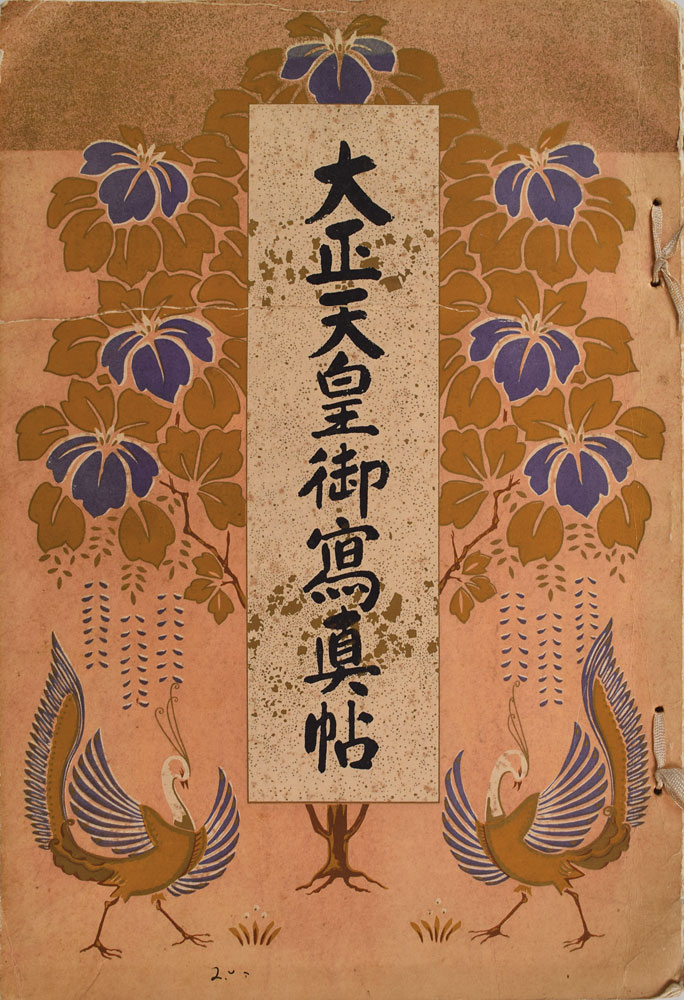 大正天皇御寫眞帖